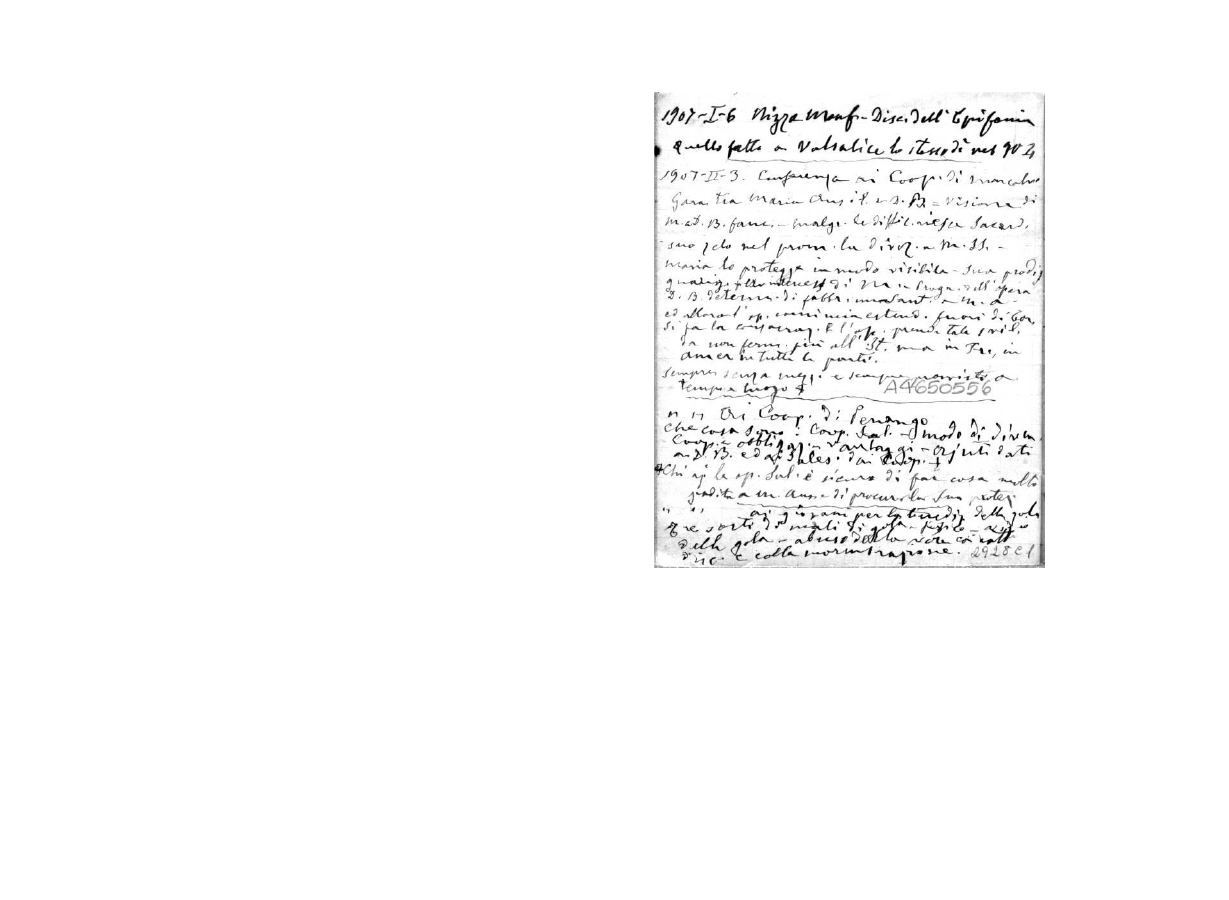 1907-I-6 Nizza Monf. - Disc. dell'Epifania
Quello fatto a Valsalice lo stesso dì nel 904
1907-II-3. Conferenza ai Coop. di Moncalvo
Gara tra Maria Ausil. e D. B. = Visione di
M. ad. B. fanc. - malgr. le diffic. riesce Sacerd.
suo zelo nel prom. la divoz. a M. SS. -
Maria lo protegge in modo visibile - Sua prodig
D. B. determ. di fabbr. un a M. A.
ed allora l'op. comincia estend. fuori di
si fa la consacraz. E l'op. prende tale
da non ferm. più all' It. ma in Fr., in
Amer in tutte le parti.
Sempre senza mezzi e sempre provvisto a
tempo e luogo
A4650556
" " Ai Coop. di Penango
Che cosa sono i Coop. Sal. - modo di diven.
Coop. e obblighi - vantaggi - Ajuti dati
a D. B. ed ai Sales. dai Coop.
Chi aj. le op. Sal. è sicuro di far cosa molto
gradita a M. Aus. e di procurarsi la sua protez
" " ai giovani per la bened. della gola
Tre sorti di mali di gola - fisico - vizio
della gola - abuso della voce coi catt
disc. e colla mormorazione.
2928 C1